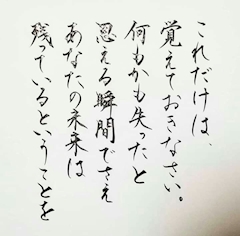 これだけは、
覚えておきなさい。
何もかも失ったと
思える瞬間でさえ
あなたの未来は
残っているということを